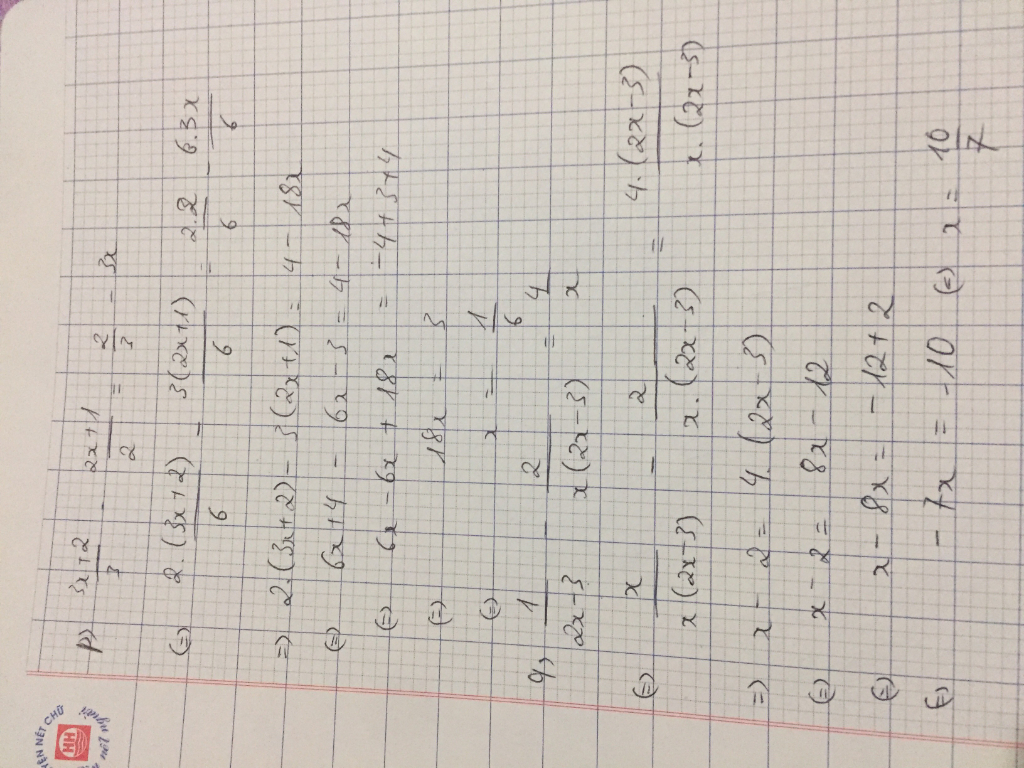 p) (3x+2)/3 - (2x+1)/2 = 2/3 - 3x
(=) 2.(3x+2)/6 - 3(2x+1)/6 = 2.2/6 - 6.3x/6
=) 2.(3x+2) - 3(2x+1) = 4 - 18x
(=) 6x+4 - 6x-3 = 4-18x
(=) 6x-6x + 18x = -4+3+4
(=) 18x = 3
(=) x = 1/6
q, 1/(2x-3) - 2/(x(2x-3)) = 4/x
(=) x/(x(2x-3)) - 2/(x.(2x-3)) = 4.(2x-3)/(x.(2x-3))
=) x - 2 = 4.(2x-3)
(=) x-2 = 8x-12
(=) x-8x = -12+2
(=) -7x = -10 (=) x = 10/7
NÉT CHỮ
HH
người